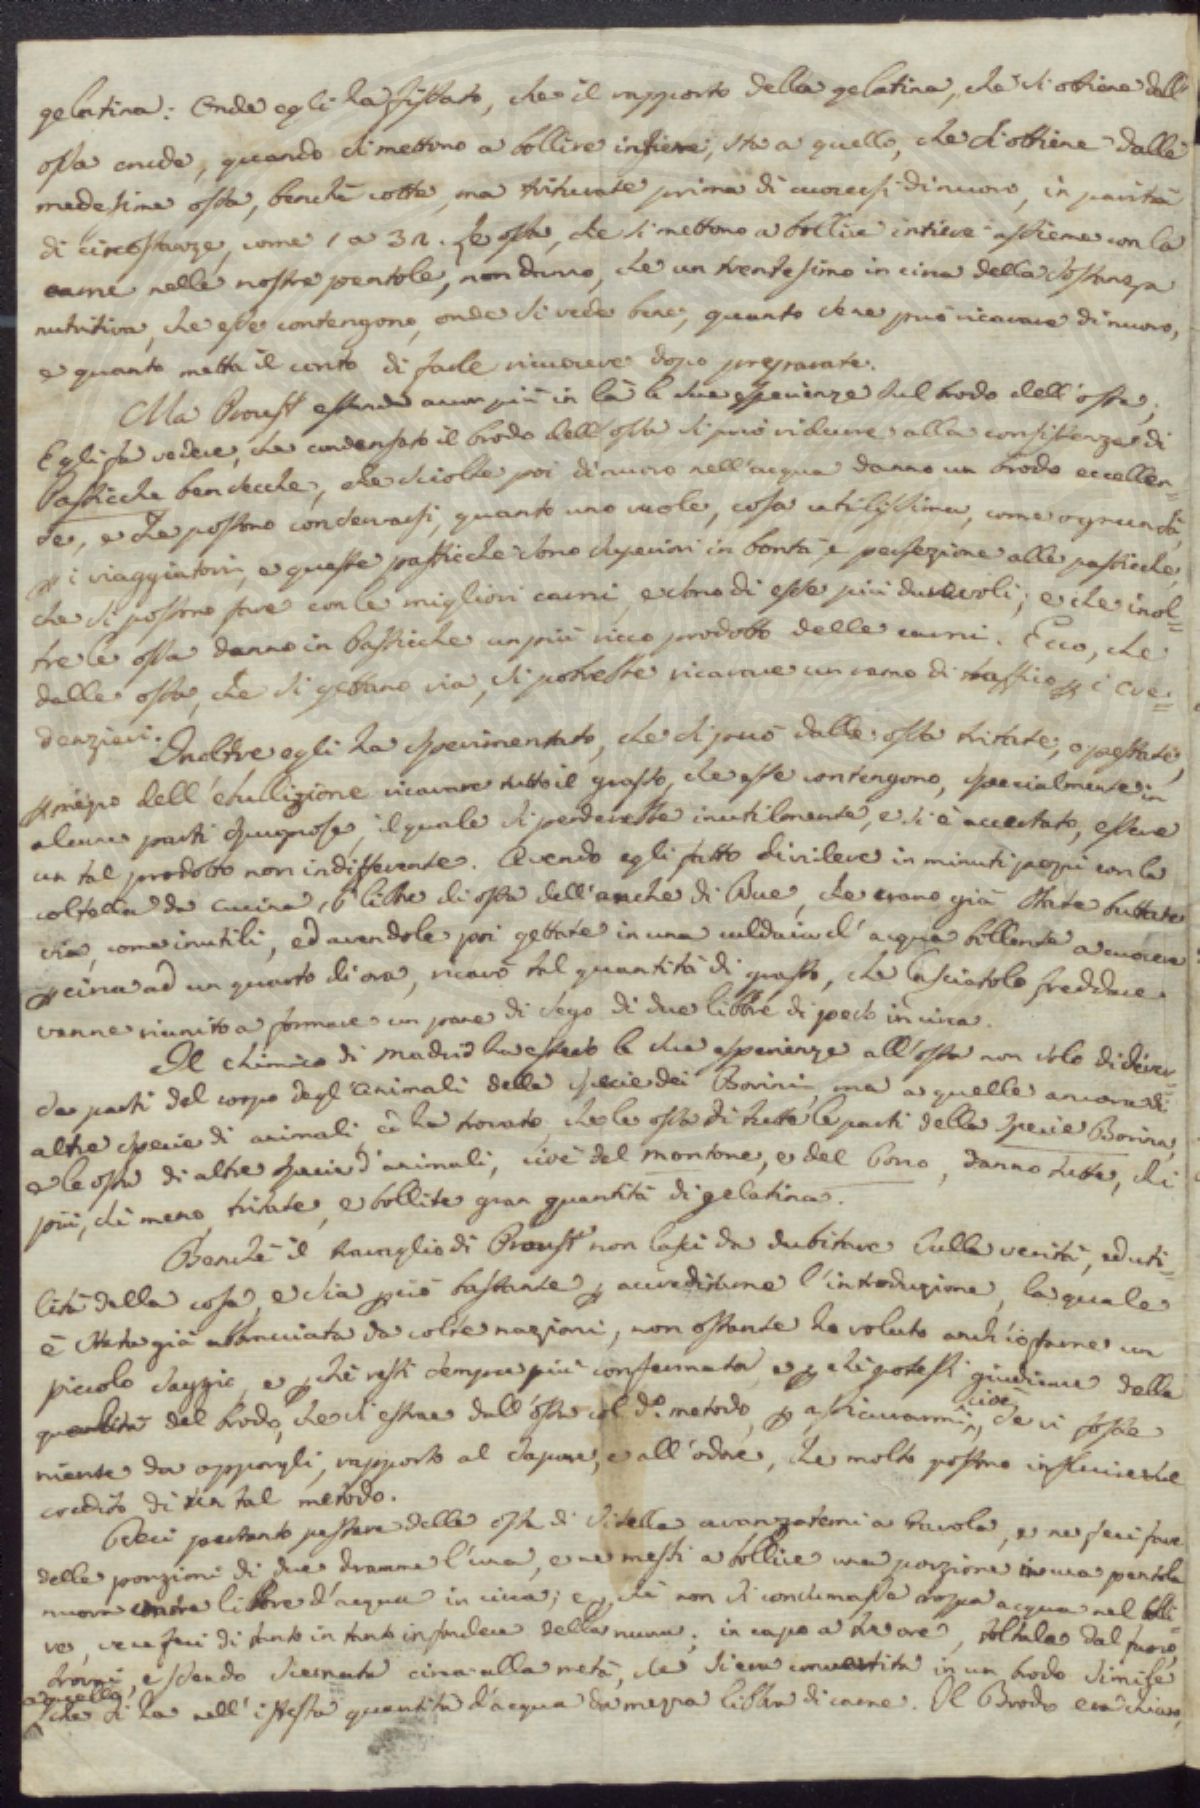 gelatina: Onde egli ha fissato, che il rapporto della gelatina, che si ottiene dall'
ossa crude, quando si mettono a bollire intiere, sta a quello, che si ottiene dalle
medesime ossa, benchè cotte, ma triturate prima di cuocersi di nuovo, in parità
di circostanze, come 1 a 32. Le ossa, che si mettono a bollire intiere assieme con la
carne nelle nostre pentole, non danno, che un trentesimo in circa della sostanza
nutritiva, che esse contengono, onde si vede bene, quanto se ne può ricavare di nuovo,
e quanto metta il conto di farle ricuocere dopo preparate.
Ma Proust estende ancor più in là le sue esperienze sul brodo dell'ossa;
Egli fa vedere, che condensato il brodo dell'ossa si può ridurre alla consistenza di
Pasticche ben secche, che sciolte poi di nuovo nell'acqua danno un brodo eccellen=
te, e che possono conservarsi, quanto uno vuole, cosa utilissima, come ognun sà,
p i viaggiatori, e queste pasticche sono superiori in bontà, e perfezione alle pasticche,
che si possono fare con le migliori carni, e sono di esse più durevoli; e che inol=
tre le ossa danno in Pasticche un più ricco prodotto delle carni. Ecco, che
dalle ossa, che si gettano via, si potrebbe ricavare un ramo di traffico p i Cre=
denzieri.
Inoltre egli ha sperimentato, che si può dalle ossa tritate, o pestate,
p mezzo dell'ebulizione ricavare tutto il grasso, che esse contengono, specialmente in
alcune parti spugnose, il quale si perderebbe inutilmente, e si è accertato, essere
un tal prodotto non indifferente. Avendo egli fatto dividere in minuti pezzi con la
coltella da cucina, 6 libbre di ossa dell'anche di Bue, che erano già state buttate
via, come inutili, ed avendole poi gettate in una caldaia d'acqua bollente a cuocere
p circa ad un quarto di ora, ricavò tal quantità di grasso, che lasciatolo freddare
venne riunito a formare un pane di sego di due libbre di peso in circa.
Il chimico di Madrid ha esteso le sue esperienze all'ossa non solo di diver=
se parti del corpo degl'animali della specie dei Bovini, ma a quelle ancora di
altre specie di animali, e ha trovato, che le ossa di tutte le parti della specie Bovina,
e le ossa di altre specie d'animali, cioè del montone, e del Porco, danno tutte, chi
più, chi meno, tritate, e bollite gran quantità di gelatina.
Benchè il ragguaglio di Proust non lasci da dubitare sulla verità, ed uti=
lità della cosa, e sia più bastante p accreditarne l'introduzione, la quale
è stata già abbracciata da colte nazioni, non ostante ho voluto anch'io farne un
piccolo saggio, e p chè resti sempre più confermata, e p chi potessi giudicare della
qualità del brodo, che si estrae dall'ossa col do. metodo, p assicurarmi cioè, se vi fosse
niente da opporgli, rapporto al sapore, e all'odore, che molto possono influire sul
credito di un tal metodo.
Feci pertanto pestare delle ossa di Vitella avanzatemi a tavola, e ne feci fare
delle porzioni di due dramme l'una, e ne messi a bollire una porzione in una pentola
nuova con tre libbre d'acqua in circa; e p chè non si consumasse troppa acqua nel bolli=
re, ve ne feci di tanto in tanto infondere della nuova; in capo a tre ore, toltala dal fuoco,
trovai, essendo scemata circa alla metà, che si era convertita in un brodo simile
a quello che si ha nell'istessa quantità d'acqua da mezza libbra di carne. Il Brodo era chiaro,